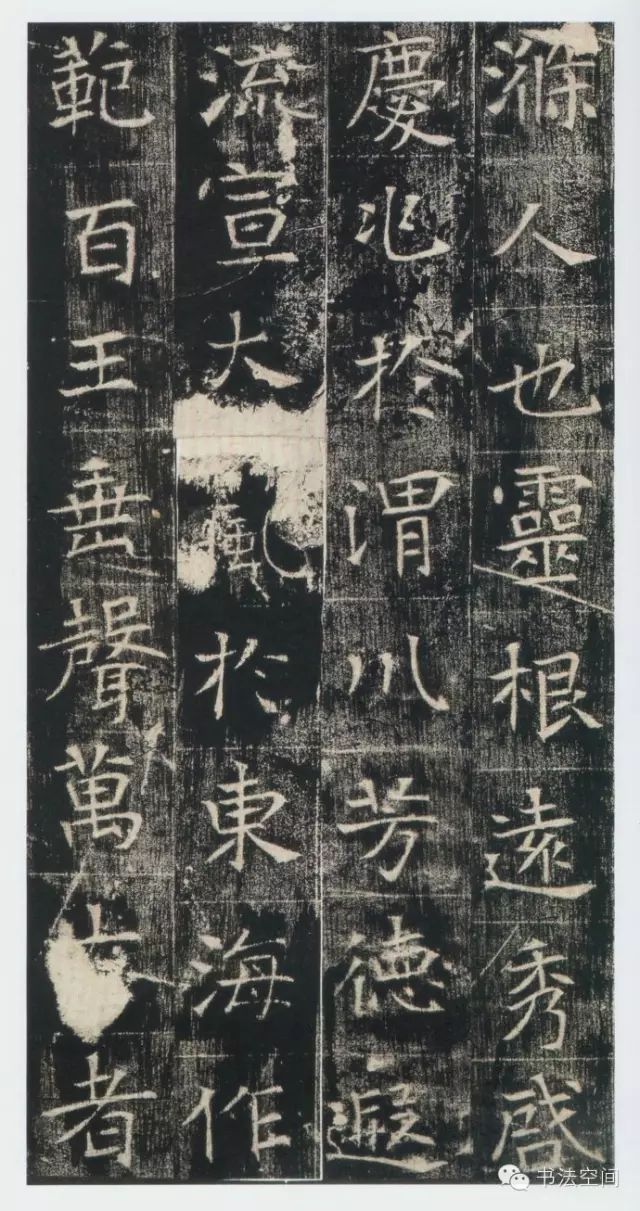 滌人也靈根遠秀啓
慶兆於渭川芳德遐
流宣大風於東海作
範百王垂聲萬者
书法空间